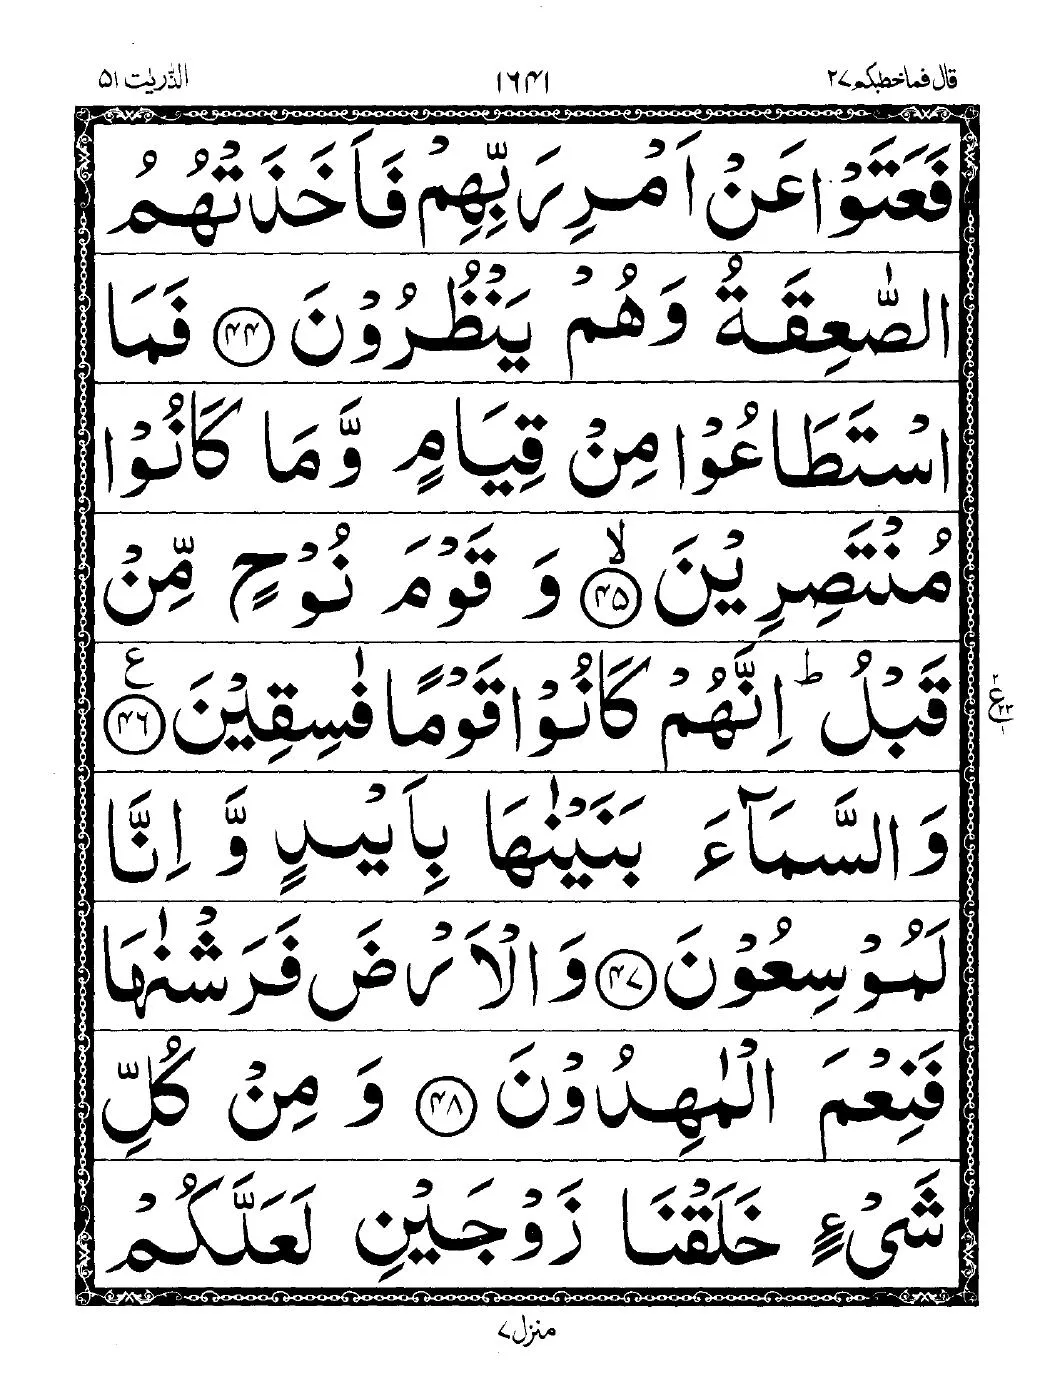 قال فماخطبکم ٢٧
١٦٤١
الذّٰریٰت ٥١
فَعَتَوْا عَنْ اَمْرِ رَبِّهِمْ فَاَخَذَتْهُمُ
الصّٰعِقَةُ وَهُمْ یَنْظُرُوْنَ ﴿۴۴﴾ فَمَا
اسْتَطَاعُوْا مِنْ قِیَامٍ وَّمَا كَانُوْا
مُنْتَصِرِیْنَ ﴿۴۵﴾ ۙ وَ قَوْمَ نُوْحٍ مِّنْ
قَبْلُ ؕ اِنَّهُمْ كَانُوْا قَوْمًا فٰسِقِیْنَ ﴿۴۶﴾ ع
٢ ع ٢٣ ١
وَالسَّمَآءَ بَنَیْنٰهَا بِاَیْىدٍ وَّ اِنَّا
لَمُوْسِعُوْنَ ﴿۴۷﴾ وَالْاَرْضَ فَرَشْنٰهَا
فَنِعْمَ الْمٰهِدُوْنَ ﴿۴۸﴾ وَ مِنْ كُلِّ
شَیْءٍ خَلَقْنَا زَوْجَیْنِ لَعَلَّكُمْ
منزل ٧